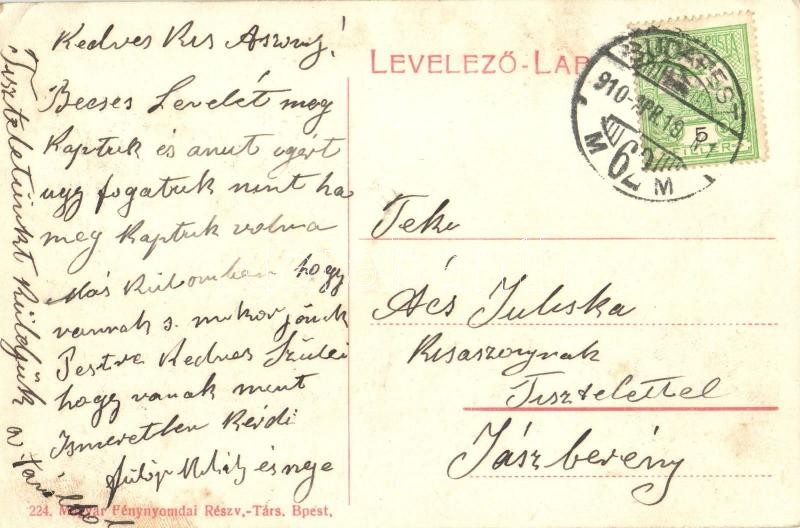 Kedves Kis Aszony!
Becses Levelét meg
Kaptuk és amit igért
ugy fogatuk mint ha
meg Kaptuk volna
Más Külömben hogy
vannak s. mikor jönek
Pestre Kedves Szülei
hogy vanak ment
Ismeretlen Kérdi
Fülöp Mihály és neje
Tiszteletünket Küldjük a
LEVELEZŐ-LAP
BUDAPEST
910 APR. 18
M 62 M
5
Teki
Ács Juliska
Kisaszonynak
Tisztelettel
Jászberény
224. Magyar Fénynyomdai Részv.-Társ. Bpest.